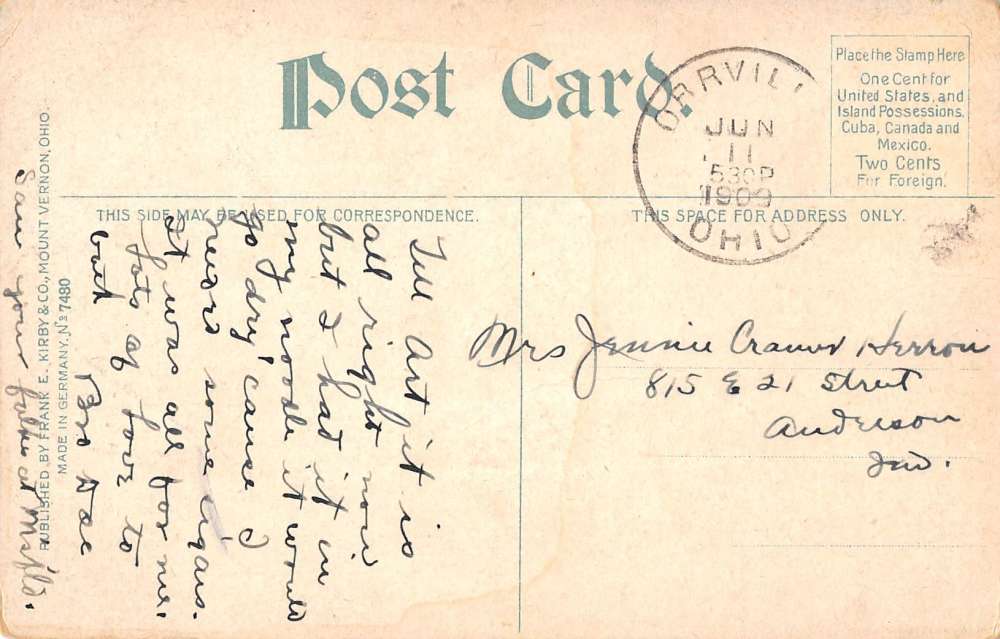 Post Card.
ORRVILL
JUN
11
530P
1909
OHIO
Place the Stamp Here
One Cent for
United States, and
Island Possessions,
Cuba, Canada and
Mexico.
Two Cents
For Foreign.
THIS SIDE MAY BE USED FOR CORRESPONDENCE.
THIS SPACE FOR ADDRESS ONLY.
Tell Art it is
all right now
but I had it in
my noodle it would
go dry 'cause I
never some cigars.
It was all for me.
Lots of love to
both
Bro
Saw your folks at
Mrs Jennie Cramer Herron
815 E 21 Street
Anderson
Ind.
PUBLISHED BY FRANK E. KIRBY & CO., MOUNT VERNON, OHIO.
MADE IN GERMANY. No 7480